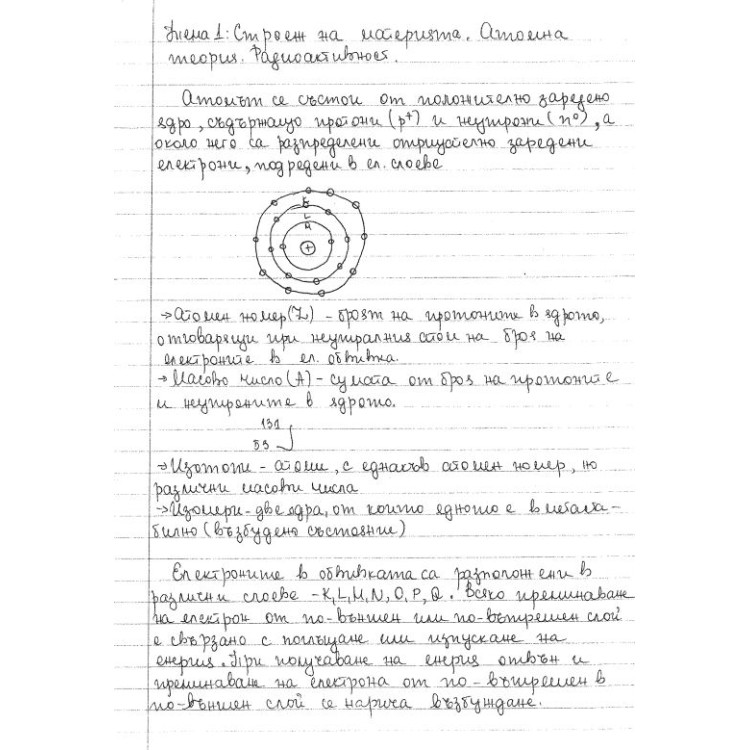 Тема 1: Строеж на материята. Атомна
теория. Радиоактивност.
Атомът се състои от положително заредено
ядро, съдържащо протони (p⁺) и неутрони (n⁰), а
около него са разпределени отрицателно заредени
електрони, подредени в ел. слоеве
K
L
M
+
→ Атомен номер (Z) - броят на протоните в ядрото,
отговарящи при неутралния атом на броя на
електроните в ел. обвивка.
→ Масово число (A) - сумата от броя на протоните
и неутроните в ядрото.
131
53 J
→ Изотопи - атоми, с еднакъв атомен номер, но
различни масови числа
→ Изомери - две ядра, от които едното е в метаста-
билно (възбудено състояние)
Електроните в обвивката са разположени в
различни слоеве - K, L, M, N, O, P, Q. Всяко преминаване
на електрон от по-външен или по-вътрешен слой
е свързано с поглъщане или изпускане на
енергия. При получаване на енергия отвън и
преминаван на електрона от по-вътрешен в
по-външен слой се нарича възбуждане.